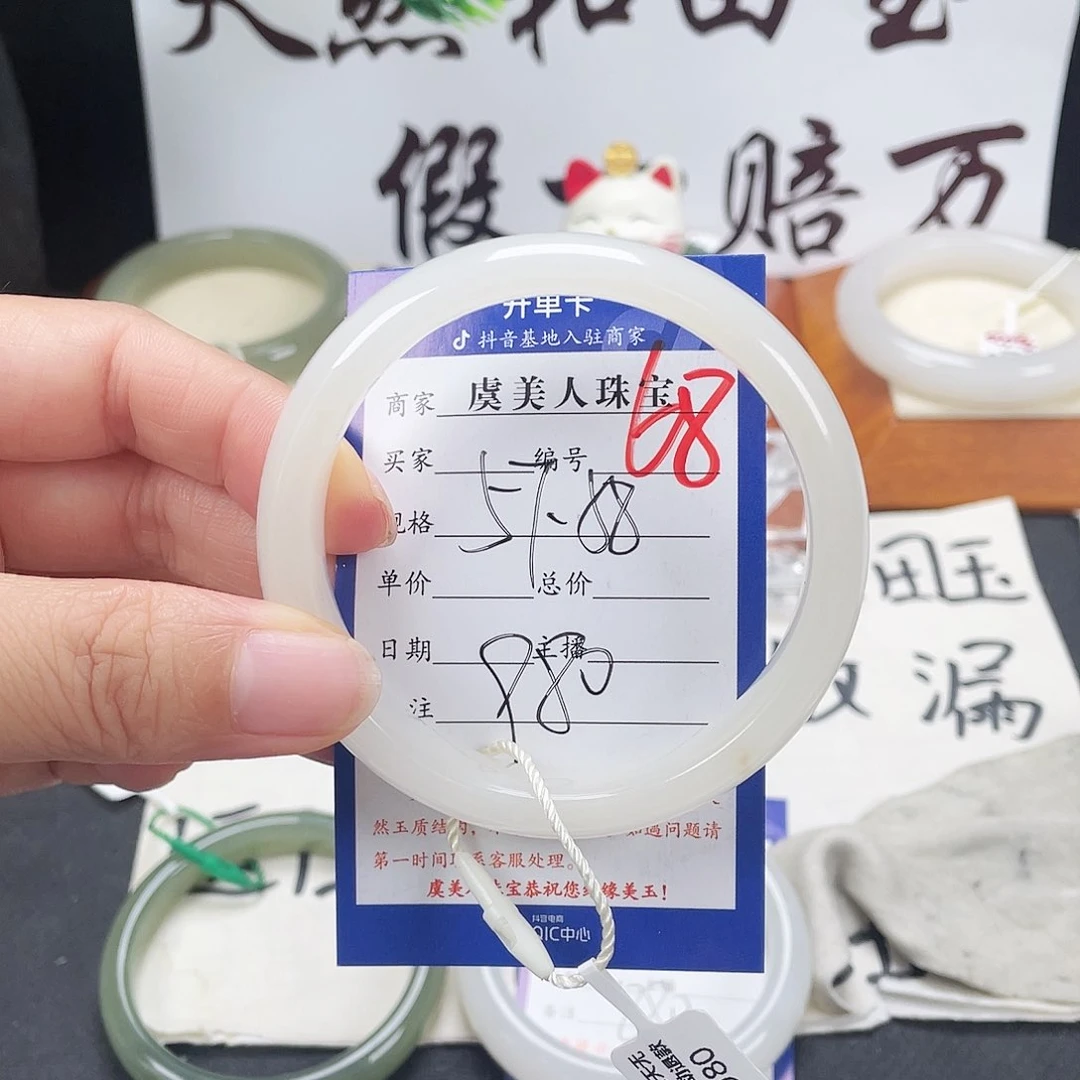 天然和田玉
假一赔万
开单卡
抖音基地入驻商家
商家 虞美人珠宝
68
买家 编号
规格 57.88
单价 总价
日期 主播
980
注
然玉质结构,
如遇问题请
第一时间联系客服处理。
虞美人珠宝恭祝您结缘美玉!
抖音电商
QIC中心
田玉
漏
980